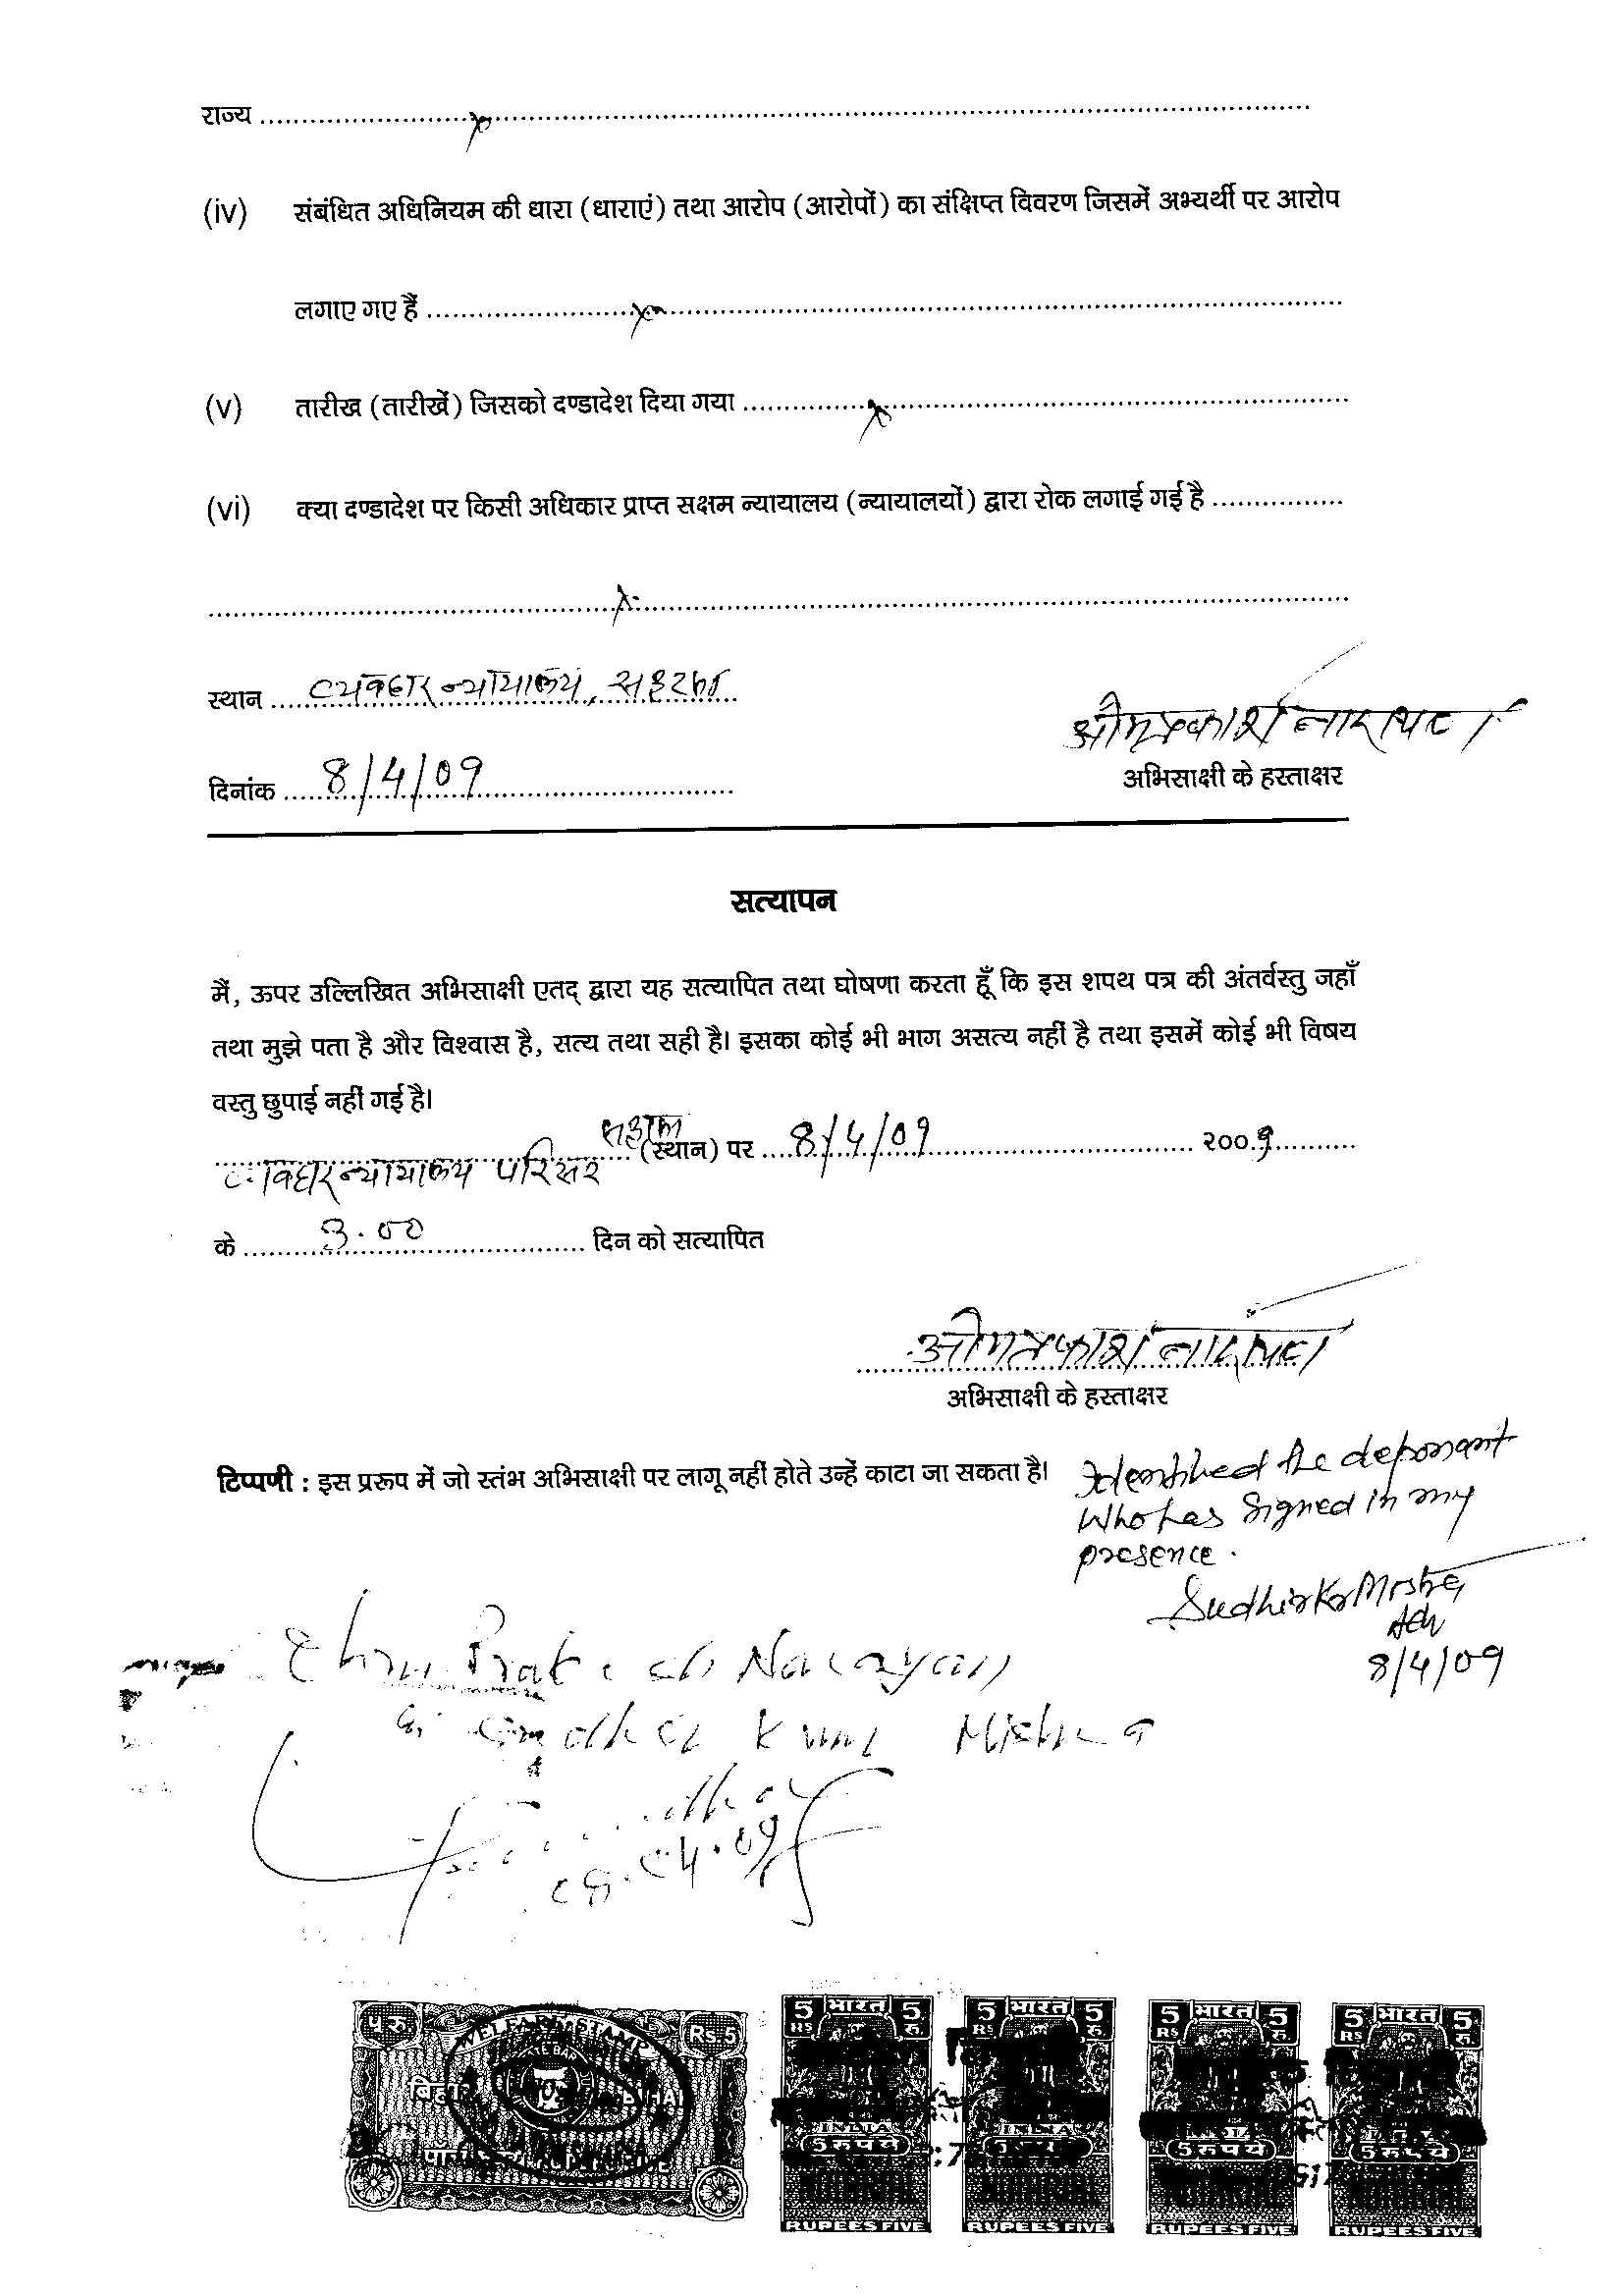 राज्य ........ x ........
(iv) संबंधित अधिनियम की धारा (धाराएं) तथा आरोप (आरोपों) का संक्षिप्त विवरण जिसमें अभ्यर्थी पर आरोप
लगाए गए हैं ........ x ........
(v) तारीख (तारीखें) जिसको दण्डादेश दिया गया ........ x ........
(vi) क्या दण्डादेश पर किसी अधिकार प्राप्त सक्षम न्यायालय (न्यायालयों) द्वारा रोक लगाई गई है ........
........ x ........
स्थान .... व्यवहार न्यायालय, सहरसा
ओमप्रकाश नारायण
दिनांक .... 8/4/09 ....
अभिसाक्षी के हस्ताक्षर
सत्यापन
मैं, ऊपर उल्लिखित अभिसाक्षी एतद् द्वारा यह सत्यापित तथा घोषणा करता हूँ कि इस शपथ पत्र की अंतर्वस्तु जहाँ
तथा मुझे पता है और विश्वास है, सत्य तथा सही है। इसका कोई भी भाग असत्य नहीं है तथा इसमें कोई भी विषय
वस्तु छुपाई नहीं गई है।
व्यवहार न्यायालय परिसर सहरसा (स्थान) पर .... 8/4/09 .... २००9 ....
के .... 3.00 .... दिन को सत्यापित
ओमप्रकाश नारायण
अभिसाक्षी के हस्ताक्षर
टिप्पणी : इस प्ररूप में जो स्तंभ अभिसाक्षी पर लागू नहीं होते उन्हें काटा जा सकता है।
Identified the deponant
Who has signed in my
presence.
Sudhir Kr Mishra
Adv
8/4/09
Narayan
Mishra
08.04.09
प.रु. WELFARE STAMP Rs.5
बिहार BIHAR
5 भारत 5 5 भारत 5 5 भारत 5 5 भारत 5
RS रु. RS रु. RS रु. RS रु.
INDIA INDIA
5 रुपये 5 रुपये 5 रुपये
RUPEES FIVE RUPEES FIVE RUPEES FIVE RUPEES FIVE